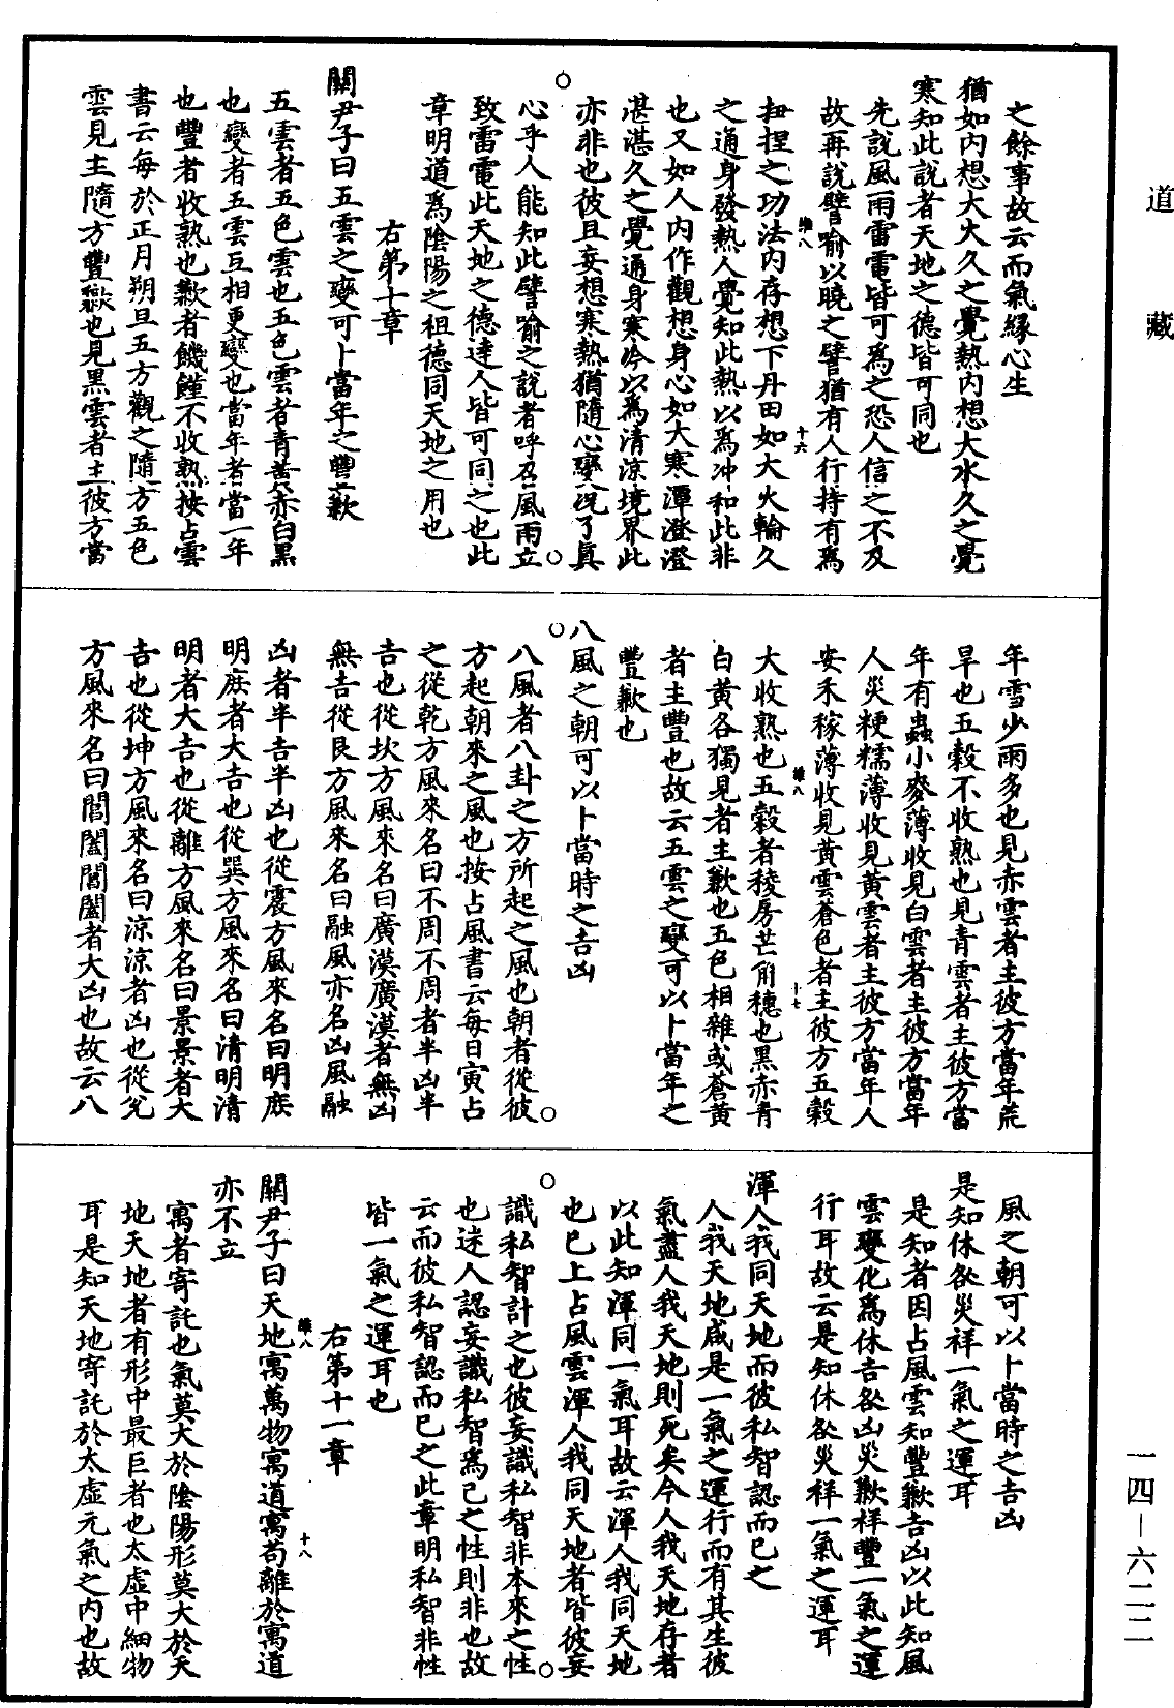 道藏
之餘事故云而氣緣心生
猶如內想大火久之覺熱內想大水久之覺
寒知此說者天地之德皆可同也
先說風雨雷電皆可為之恐人信之不及
故再說譬喻以曉之譬猶有人行持有為
扭捏之功法內存想下丹田如大火輪久
之通身發熱人覺知此熱以為沖和此非
也又如人內作觀想身心如大寒潭澄澄
湛湛久之覺通身寒冷以為清涼境界此
亦非也彼且妄想寒熱猶隨心變況了真
心乎人能知此譬喻之說者呼召風雨立
致雷電此天地之德達人皆可同之也此
章明道為陰陽之祖德同天地之用也
右第十章
關尹子曰五雲之變可卜當年之豐歉
五雲者五色雲也五色雲者青黃赤白黑
也變者五雲互相更變也當年者當一年
也豐者收熟也歉者饑饉不收熟按占雲
書云每於正月朔旦五方觀之隨方五色
雲見主隨方豐歉也見黑雲者主彼方當
年雪少雨多也見赤雲者主彼方當年荒
旱也五穀不收熟也見青雲者主彼方當
年有蟲小麥薄收見白雲者主彼方當年
人災粳糯薄收見黃雲者主彼方當年人
安禾稼薄收見黃雲蒼色者主彼方五穀
大收熟也五穀者稜房芒角穗也黑赤青
白黃各獨見者主歉也五色相雜或蒼黃
者主豐也故云五雲之變可以卜當年之
豐歉也
八風之朝可以卜當時之吉凶
八風者八卦之方所起之風也朝者從彼
方起朝來之風也按占風書云每日寅占
之從乾方風來名曰不周不周者半凶半
吉也從坎方風來名曰廣漠廣漠者無凶
無吉從艮方風來名曰融風亦名凶風融
凶者半吉半凶也從震方風來名曰明庶
明庶者大吉也從巽方風來名曰清明清
明者大吉也從離方風來名曰景景者大
吉也從坤方風來名曰涼涼者凶也從兌
方風來名曰閶闔閶闔者大凶也故云八
風之朝可以卜當時之吉凶
是知休咎災祥一氣之運耳
是知者因占風雲知豐歉吉凶以此知風
雲變化為休吉咎凶災歉祥豐一氣之運
行耳故云是知休咎災祥一氣之運耳
渾人我同天地而彼私智認而已之
人我天地咸是一氣之運行而有其生彼
氣盡人我天地則死矣今人我天地存者
以此知渾同一氣耳故云渾人我同天地
也已上占風雲渾人我同天地者皆彼妄
識私智計之也彼妄識私智非本來之性
也迷人認妄識私智為己之性則非也故
云而彼私智認而已之此章明私智非性
皆一氣之運耳也
右第十一章
關尹子曰天地寓萬物寓道寓苟離於寓道
亦不立
寓者寄託也氣莫大於陰陽形莫大於天
地天地者有形中最巨者也太虛中細物
耳是知天地寄託於太虛元氣之內也故
一四—六二二